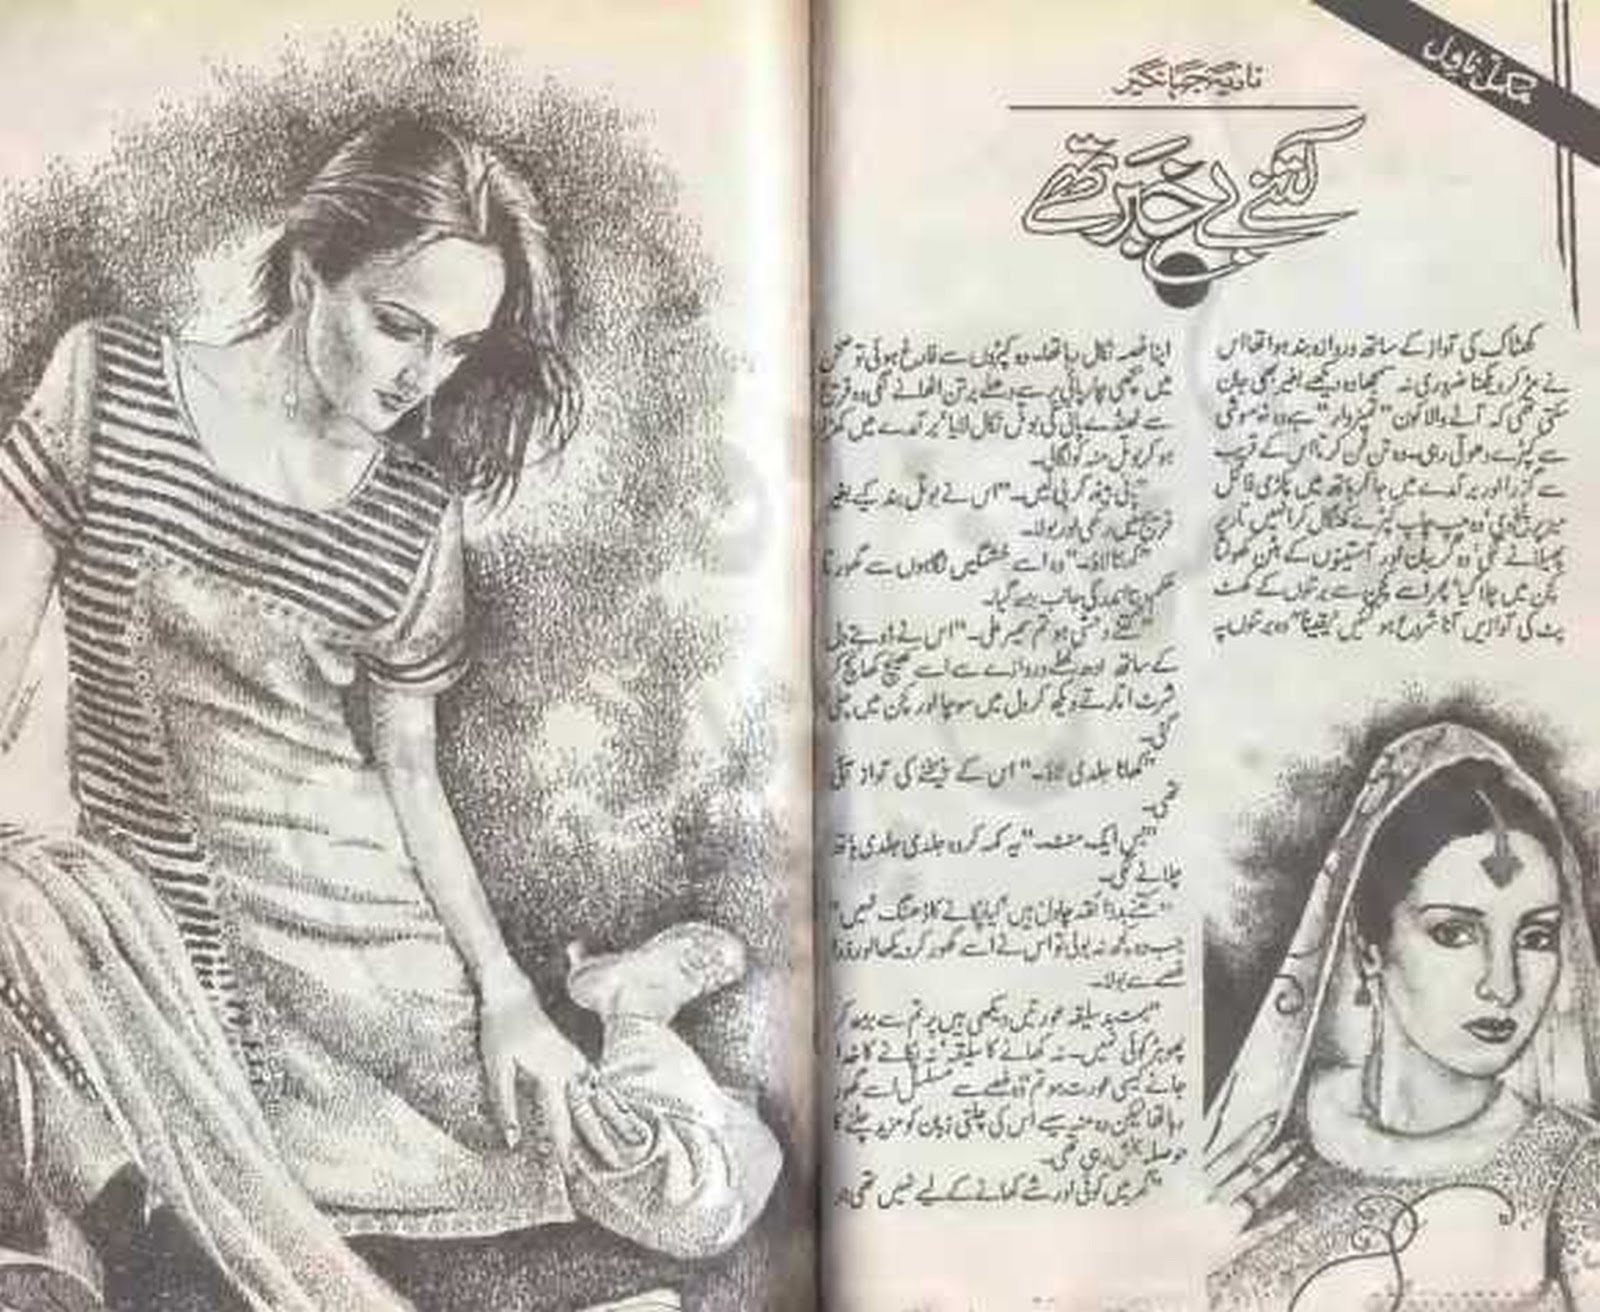 مکمل ناول
نادیہ جہانگیر
کتنے بے خبر تھے
کھٹاک کی آواز کے ساتھ دروازہ بند ہوا تھا اس
نے مڑ کر دیکھنا ضروری نہ سمجھا وہ دیکھے بغیر بھی جان
سکتی تھی کہ آنے والا کون ہے وہ خاموشی
سے کپڑے دھوتی رہی۔ وہ تن فن کرتا اس کے قریب
سے گزرا اور برآمدے میں جا کر ہاتھ میں پکڑی فائل
میز پر پٹخ دی وہ چپ چاپ کپڑے کھنگال کر انہیں تار پر
پھیلانے لگی وہ گریبان اور آستینوں کے بٹن کھولتا
کچن میں چلا گیا پھر اسے کچن سے برتنوں کے کھٹ
پٹ کی آوازیں آنا شروع ہو گئیں یقیناً" وہ برتنوں پہ
اپنا غصہ نکال رہا تھا۔ وہ کپڑوں سے فارغ ہوئی تو صحن
میں بچھی چارپائی پر سے دھلے برتن اٹھانے لگی وہ فریج
سے ٹھنڈے پانی کی بوتل نکال لایا برآمدے میں کھڑا
ہو کر بوتل منہ کو لگالی۔
"پانی بیٹھ کر پی لیں۔" اس نے بوتل بند کیے بغیر
فریج میں رکھی اور بولا۔
"کھانا لاؤ۔" وہ اسے خشمگیں نگاہوں سے گھورتا
حکم دیتا اندر کی جانب بڑھ گیا۔
"کتنے وحشی ہو تم میر علی۔" اس نے ڈوبتے دل
کے ساتھ ادھ کھلے دروازے سے اسے کھینچ کھانچ کر
شرٹ اتارتے دیکھ کر دل میں سوچا اور کچن میں چلی
گئی۔
"کھانا جلدی لاؤ۔" اس کے چیخنے کی آواز آئی
تھی۔
"بس ایک منٹ۔" یہ کہہ کر وہ جلدی جلدی ہاتھ
چلانے لگی۔
"کتنے بدذائقہ چاول ہیں کیا پکانے کا ڈھنگ نہیں"
جب وہ کچھ نہ بولی تو اس نے اسے گھور کر دیکھا اور
غصے سے بولا۔
"بہت بدسلیقہ عورتیں دیکھی ہیں پر تم سے بڑھ کر
پھوہڑ کوئی نہیں۔ نہ کھانے کا سلیقہ نہ پکانے کا خدا
جانے کیسی عورت ہو تم" وہ غصے سے مسلسل اسے گھور
رہا تھا لیکن وہ اس کی چلتی زبان کو مزید چلنے کا
حوصلہ بخش رہی تھی۔
"گھر میں کوئی اور شے کھانے کے لیے نہیں تھی